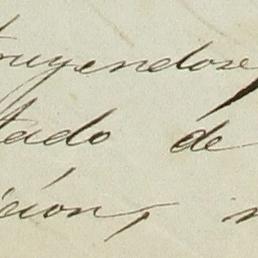 truyendose
tado de
ición,